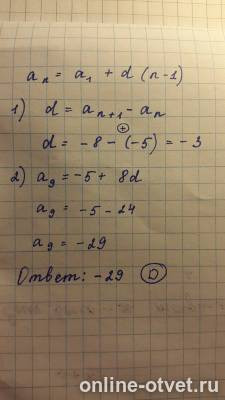 aₙ = a₁ + d (n-1)
1) d = aₙ₊₁ - aₙ
d = -8 - (-5) = -3
2) a₉ = -5 + 8d
a₉ = -5 - 24
a₉ = -29
Ответ: -29 D
online-otvet.ru